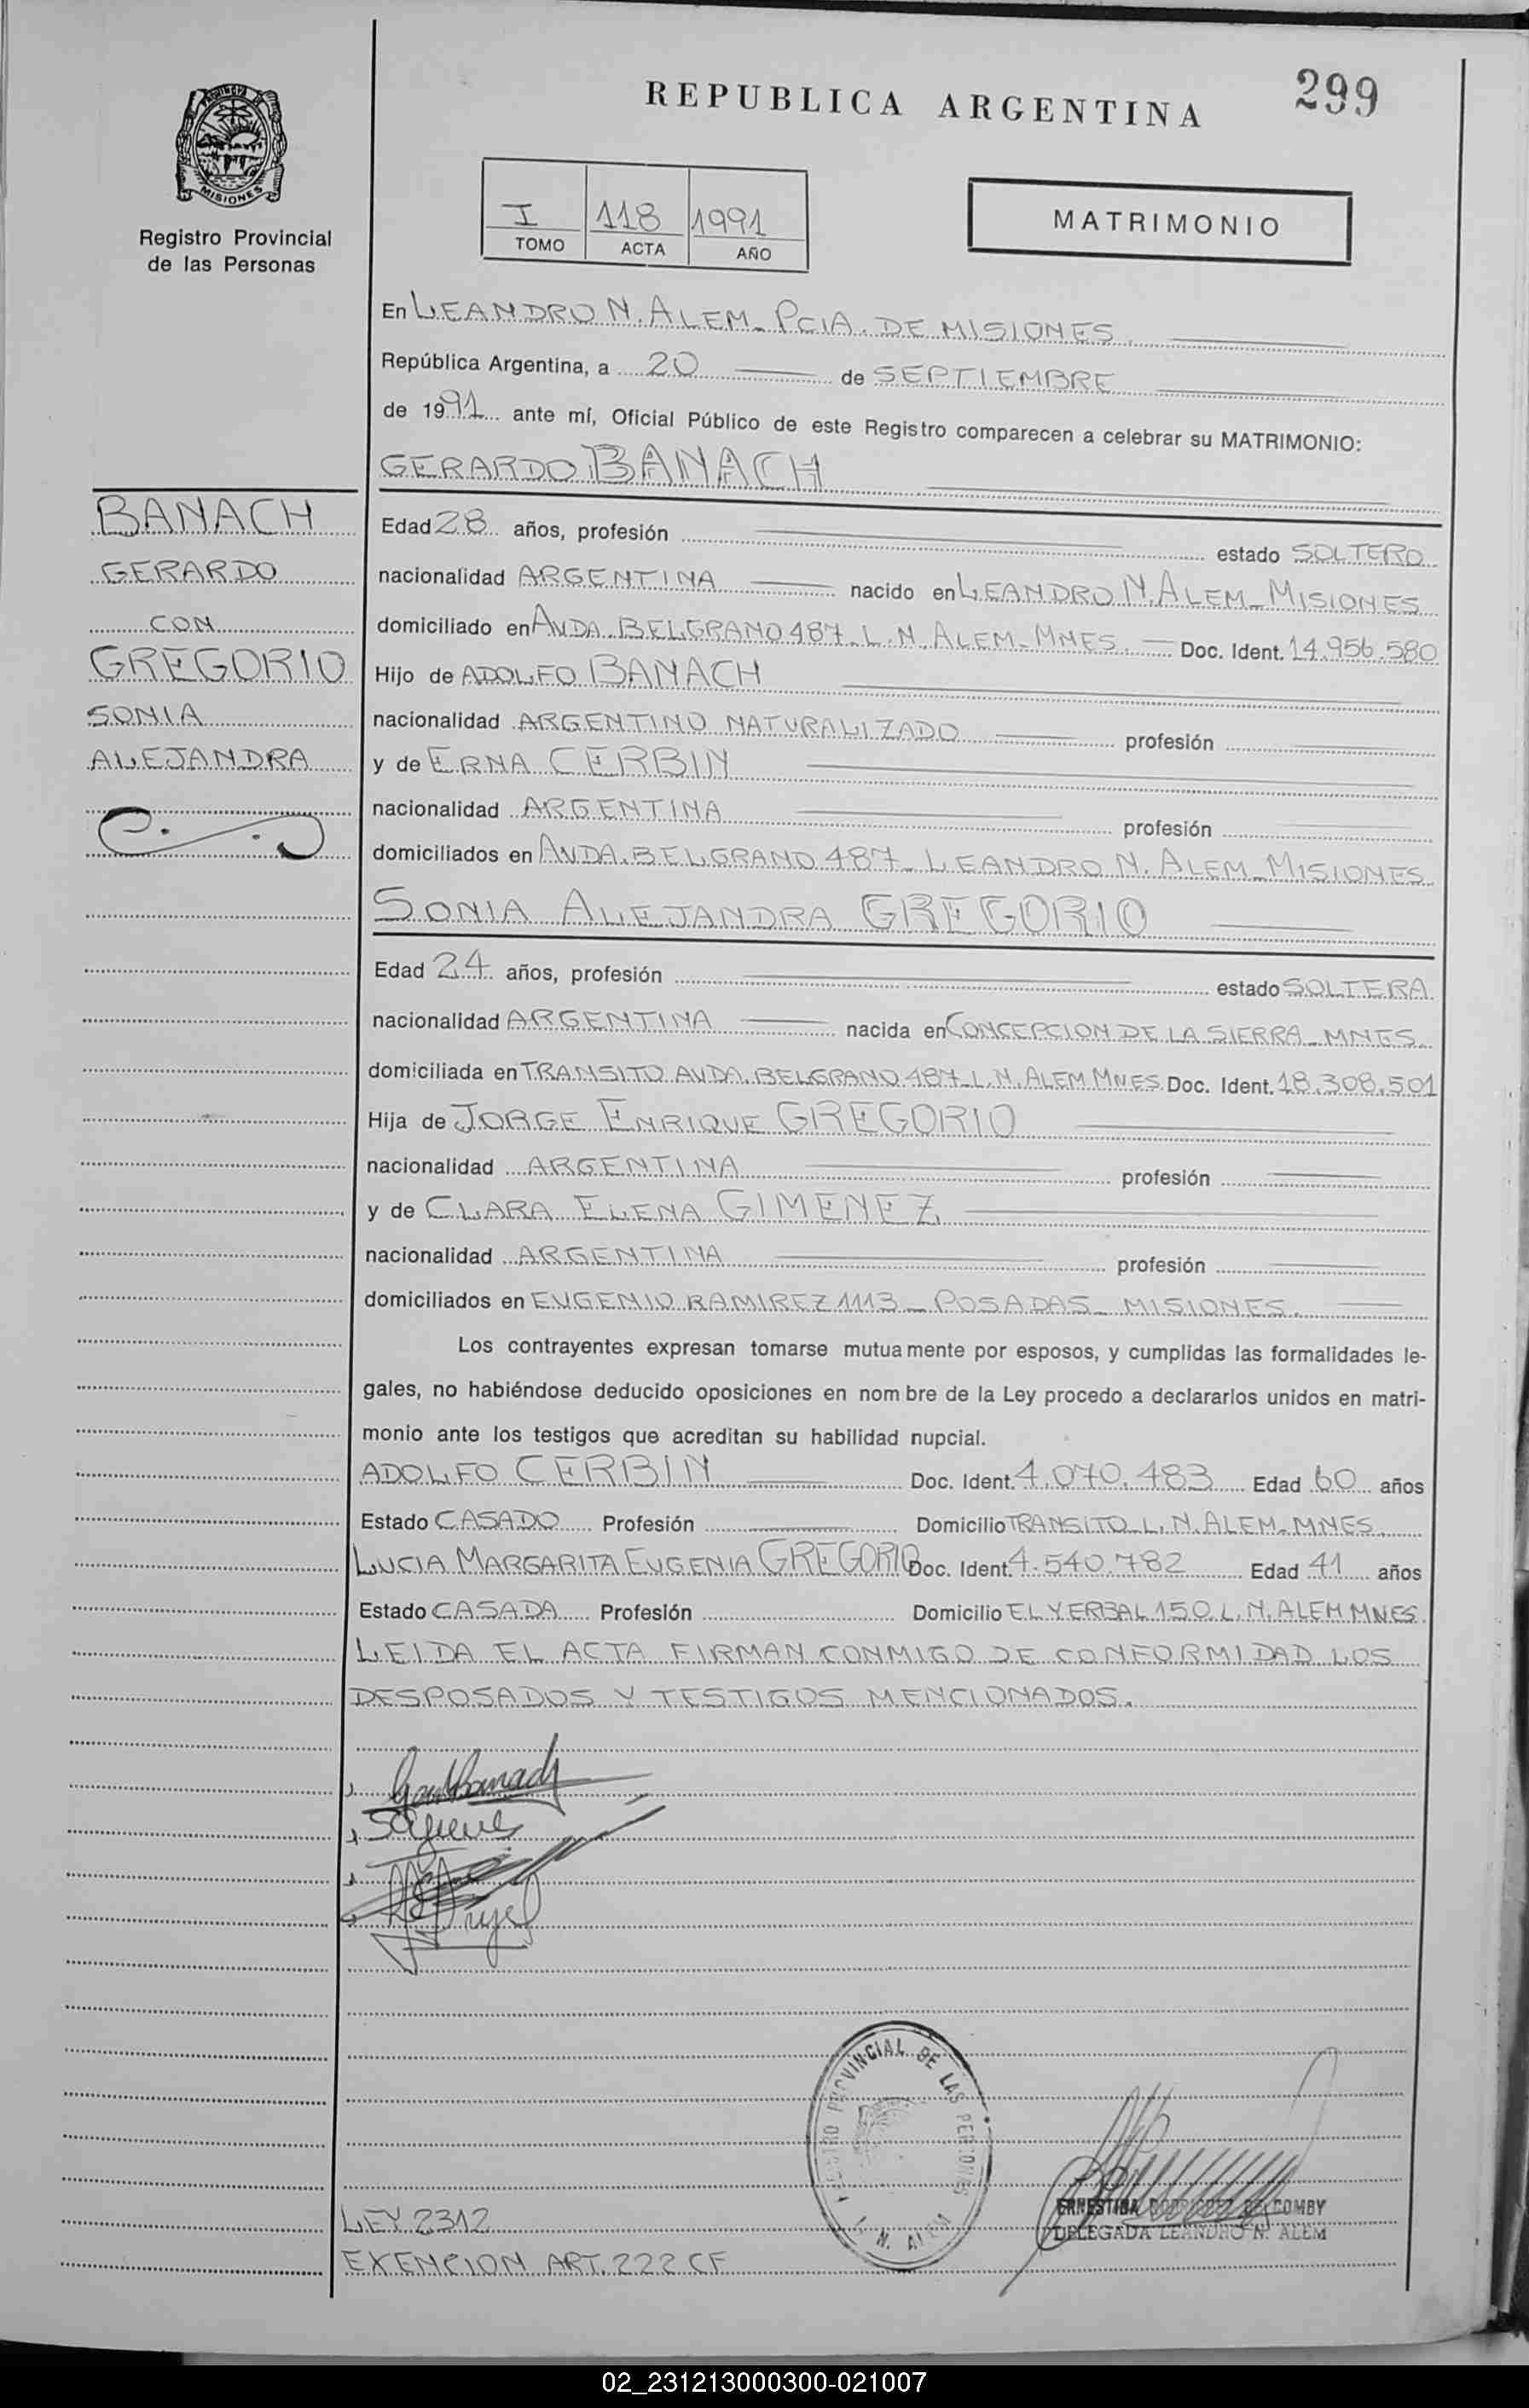 PROVINCIA DE
MISIONES
Registro Provincial
de las Personas
REPUBLICA ARGENTINA
299
I 118 1991
TOMO ACTA AÑO
MATRIMONIO
En LEANDRO N. ALEM_ PCIA. DE MISIONES.
República Argentina, a 20 de SEPTIEMBRE
de 1991 ante mí, Oficial Público de este Registro comparecen a celebrar su MATRIMONIO:
GERARDO BANACH
BANACH
GERARDO
CON
GREGORIO
SONIA
ALEJANDRA
Edad 28 años, profesión estado SOLTERO
nacionalidad ARGENTINA nacido en LEANDRO N. ALEM_ MISIONES
domiciliado en AVDA. BELGRANO 487_ L. N. ALEM_ MNES. Doc. Ident. 14.956.580
Hijo de ADOLFO BANACH
nacionalidad ARGENTINO NATURALIZADO profesión
y de ERNA CERBIN
nacionalidad ARGENTINA profesión
domiciliados en AVDA. BELGRANO 487_ LEANDRO N. ALEM_ MISIONES
SONIA ALEJANDRA GREGORIO
Edad 24 años, profesión estado SOLTERA
nacionalidad ARGENTINA nacida en CONCEPCION DE LA SIERRA_ MNES.
domiciliada en TRANSITO AVDA. BELGRANO 487_ L. N. ALEM MNES Doc. Ident. 18.308.501
Hija de JORGE ENRIQUE GREGORIO
nacionalidad ARGENTINA profesión
y de CLARA ELENA GIMENEZ
nacionalidad ARGENTINA profesión
domiciliados en EUGENIO RAMIREZ 1113_ POSADAS_ MISIONES.
Los contrayentes expresan tomarse mutuamente por esposos, y cumplidas las formalidades le-
gales, no habiéndose deducido oposiciones en nombre de la Ley procedo a declararlos unidos en matri-
monio ante los testigos que acreditan su habilidad nupcial.
ADOLFO CERBIN Doc. Ident. 4.070.483 Edad 60 años
Estado CASADO Profesión Domicilio TRANSITO L. N. ALEM_ MNES.
LUCIA MARGARITA EUGENIA GREGORIO Doc. Ident. 4.540.782 Edad 41 años
Estado CASADA Profesión Domicilio EL YERBAL 150 L. N. ALEM MNES
LEIDA EL ACTA FIRMAN CONMIGO DE CONFORMIDAD LOS
DESPOSADOS Y TESTIGOS MENCIONADOS.
REGISTRO PROVINCIAL DE LAS PERSONAS
L. N. ALEM
ERNESTINA RODRIGUEZ DE COMBY
DELEGADA LEANDRO N. ALEM
LEY 2312
EXENCION ART. 222 CF
02_231213000300-021007